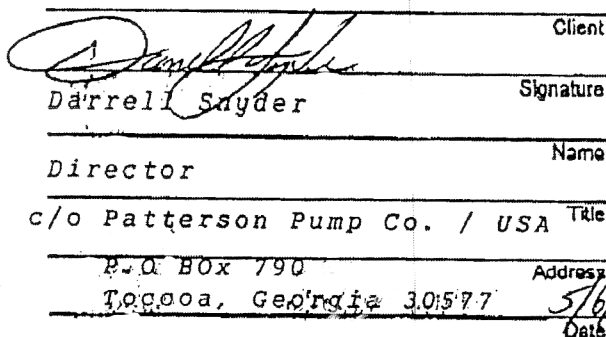 Client
Signature
Darrell Snyder
Name
Director
Title
c/o Patterson Pump Co. / USA
Address
P.O BOx 790
Toccoa, Georgia 30577
5/6/
Date